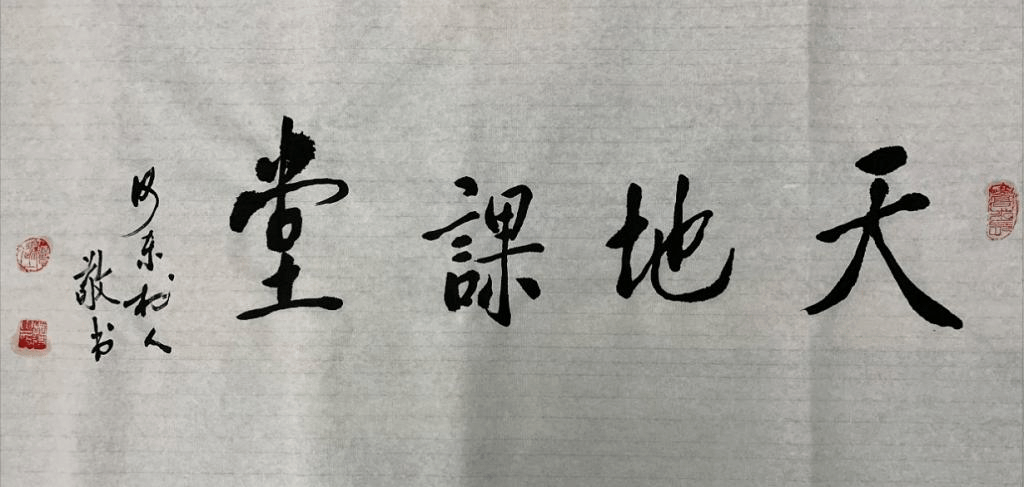 天地課堂
河东村人
敬书